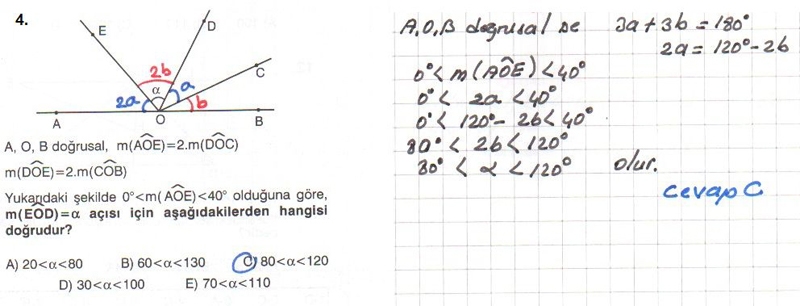 4.
E
D
C
2b
α
a
2a
b
A
O
B
A, O, B doğrusal, m(AÔE)=2.m(DÔC)
m(DÔE)=2.m(CÔB)
Yukarıdaki şekilde 0°<m(AÔE)<40° olduğuna göre,
m(EÔD)=α açısı için aşağıdakilerden hangisi
doğrudur?
A) 20<α<80 B) 60<α<130 C) 80<α<120
D) 30<α<100 E) 70<α<110
A,O,B doğrusal ise 3a+3b=180°
2a=120°-2b
0°<m(AÔE)<40°
0°<2a<40°
0°<120°-2b<40°
80°<2b<120°
80°<α<120° olur.
cevap C